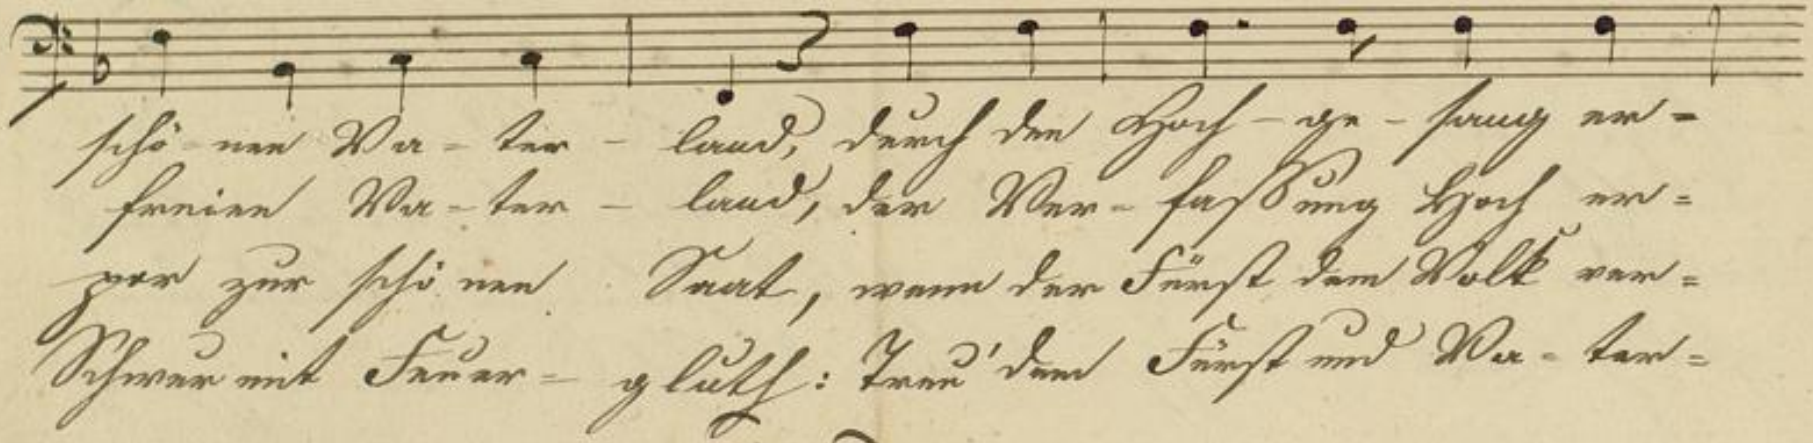 schö-nen Va-ter-land, durch den Hoch-ge-sang er-
freien Va-ter-land, der Ver-faßung Hoch er-
por zur schö nen Saat, wenn der Fürst dem Volk ver-
Schwur mit Feuer-gluth: Treu' dem Fürst und Va-ter-